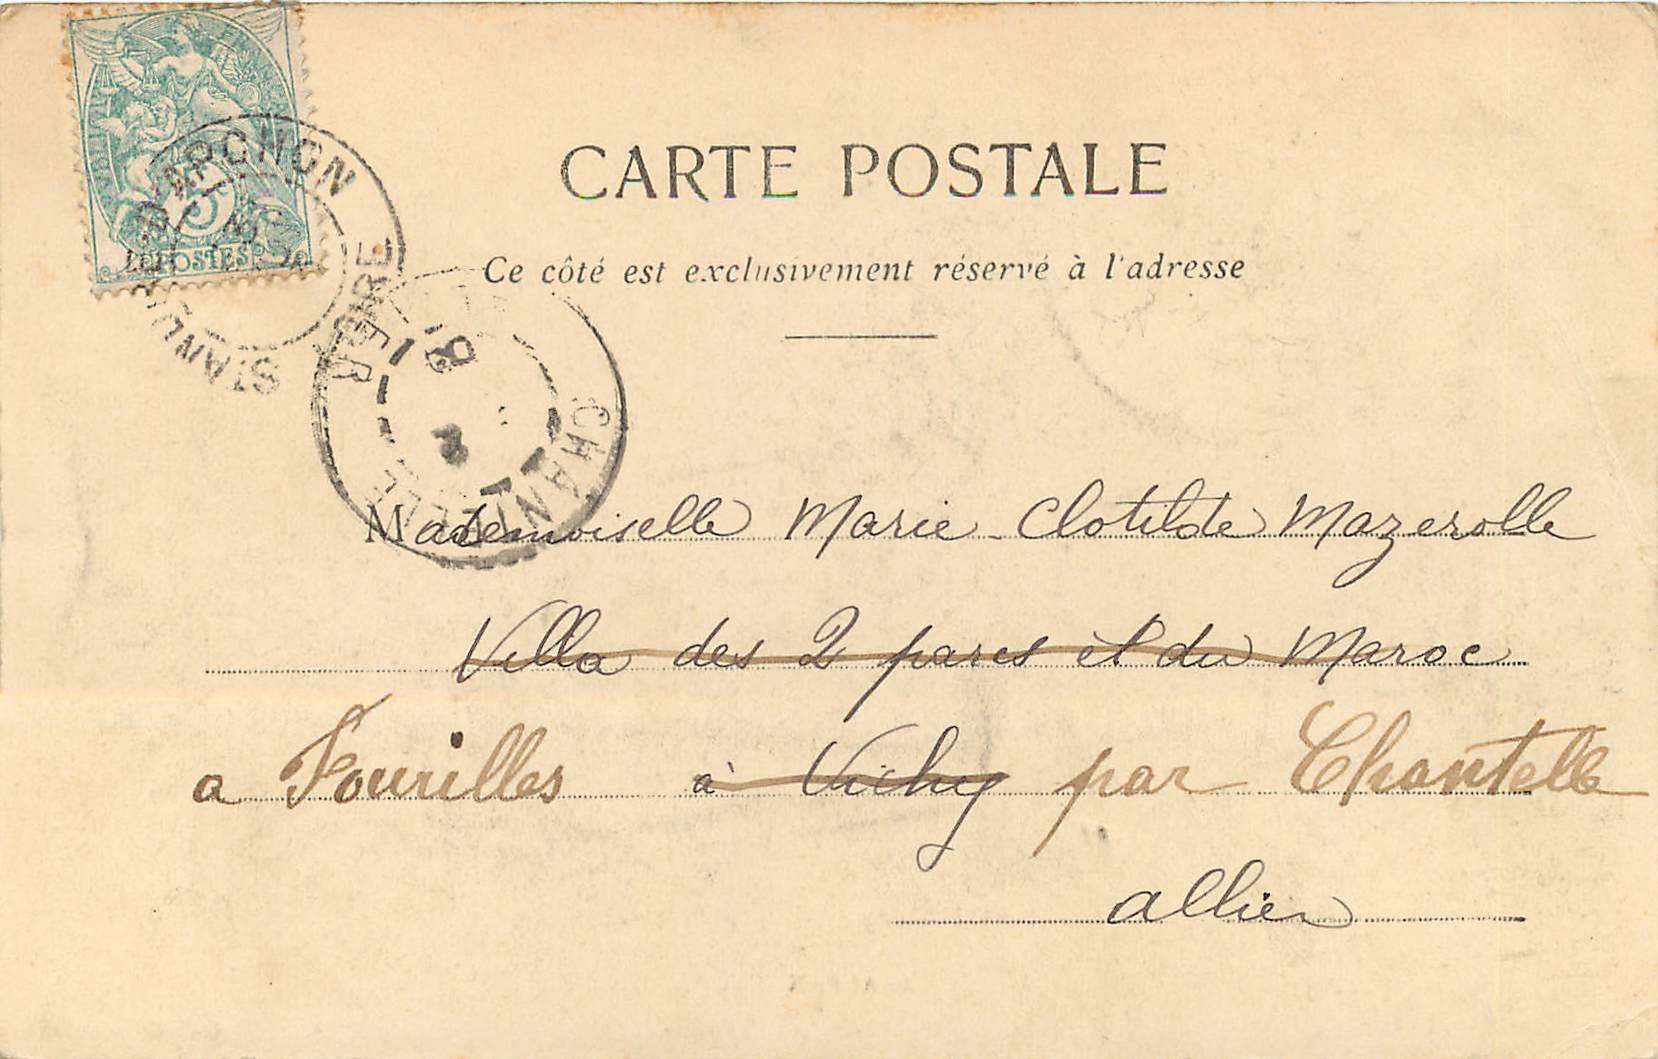 CARTE POSTALE
Ce côté est exclusivement réservé à l'adresse
5
POSTES
CHANTELLE
Mademoiselle Marie-Clotilde Mazerolle
Villa des 2 parcs et du Maroc
a Fourilles à Vichy par Chantelle
allier